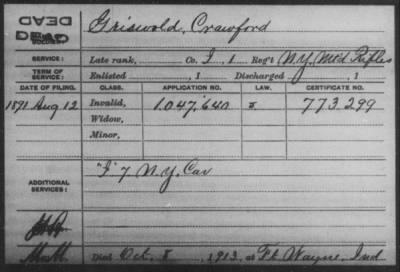 DEAD
DEAD
SOLDIER:
Griswold, Crawford
SERVICE:
Late rank, Co. I, 1 Reg't N.Y. M'td Rifles
TERM OF SERVICE:
Enlisted , 1 Discharged , 1
DATE OF FILING. CLASS. APPLICATION NO. LAW. CERTIFICATE NO.
1891 Aug 12 Invalid, 1.047.640 773.299
Widow,
Minor,
ADDITIONAL SERVICES:
"I" 7 N.Y. Cav
Died Oct. 8, 1913, at Ft. Wayne, Ind